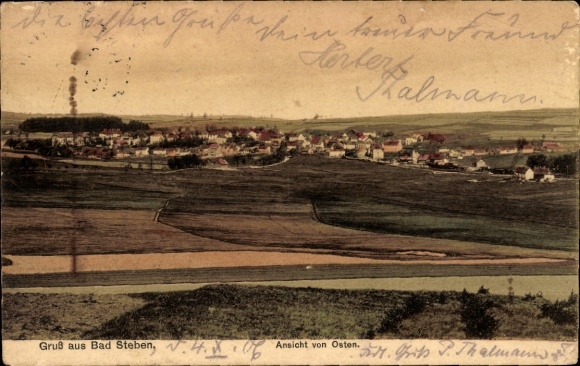 die besten Grüße dein treuer Freund
Herbert
Thalmann
Gruß aus Bad Steben. d. 4. X. 06 Ansicht von Osten.
Thalmann